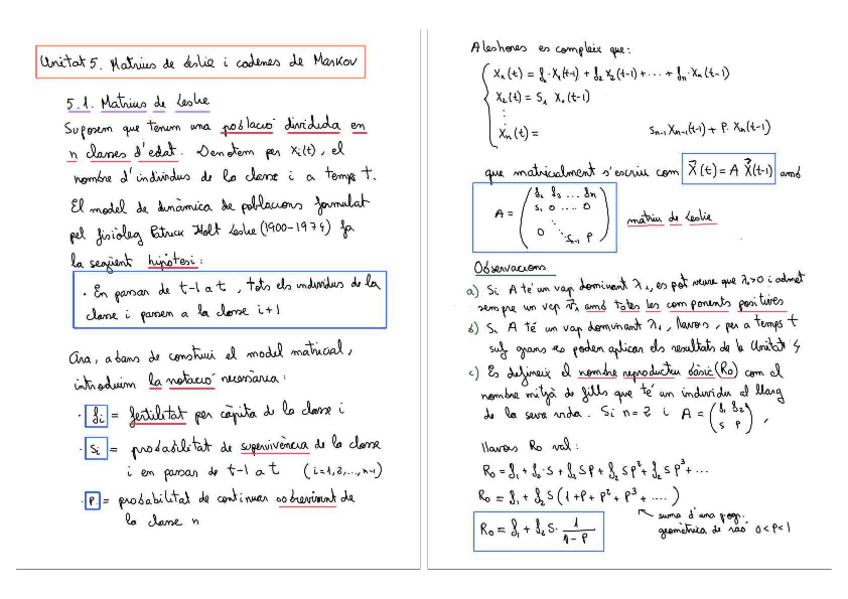 Unitat 5. Matrius de Leslie i cadenes de Markov
5.1. Matrius de Leslie
Suposem que tenim una població dividida en
n classes d'edat. Denotem per Xi(t), el
nombre d'individus de la classe i a temps t.
El model de dinàmica de poblacions formulat
pel fisiòleg Patrick Holt Leslie (1900-1974) fa
la següent hipòtesi:
· En passar de t-1 a t, tots els individus de la
classe i passen a la classe i+1
Ara, abans de construir el model matricial,
introduim la notació necessària:
· fi = fertilitat per càpita de la classe i
· Si = probabilitat de supervivència de la classe
i en passar de t-1 a t (i=1,2,...,n-1)
· P = probabilitat de continuar sobrevivint de
la classe n
Aleshores es compleix que:
X1(t) = f1·X1(t-1) + f2 X2(t-1) + ... + fn·Xn(t-1)
X2(t) = S1 X1(t-1)
⋮
Xn(t) = Sn-1 Xn-1(t-1) + P. Xn(t-1)
que matricialment s'escriu com X(t) = A X(t-1) amb
A = ( f1 f2 ... fn
S1 0 .... 0
0 Sn-1 P )
matriu de Leslie
Observacions
a) Si A té un vap dominant λ1, es pot veure que λ1>0 i admet
sempre un vep v1 amb totes les components positives
b) Si A té un vap dominant λ1, llavors, per a temps t
suf. grans es poden aplicar els resultats de la Unitat 4
c) Es defineix el nombre reproductiu bàsic (R0) com el
nombre mitjà de fills que té un individu al llarg
de la seva vida. Si n=2 i A = ( f1 f2
s P ) ,
llavors R0 val:
R0 = f1 + f2·S + f2 SP + f2 SP² + f2 SP³ + ...
R0 = f1 + f2 S (1+P+P²+P³+....)
suma d'una progr.
geomètrica de raó 0<P<1
R0 = f1 + f2 S· 1/(1-P)